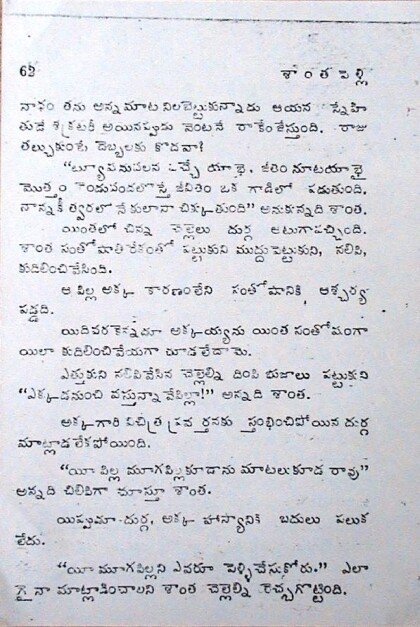 62
శాంత పెళ్లి
నాథం తను అన్నమాట నిలబెట్టుకున్నాడు ఆయన స్నేహి
తుడే శెక్రటరీ అయినప్పుడు వెంటనే రాకేంజేస్తుంది. రాజు
తల్చుకుంటే దెబ్బలకు కొదవా?
"ట్యూషనువలన వచ్చే యాభై, జీతం నూటయాభై
మొత్తం రొండువందలొస్తే జీవితం ఒక గాడిలో పడుతుంది.
నాన్నకీ త్వరలో నే కులాసా చిక్కుతుంది" అనుకున్నది శాంత.
యింతలో చిన్న చెల్లెలు దుర్గ అటుగావచ్చింది.
శాంత సంతోషాతిరేకంతో పట్టుకుని ముద్దుపెట్టుకుని, నలిపి,
కుదిలించివేసింది.
ఆ పిల్ల అక్క కారణంలేని సంతోషానికి, ఆశ్చర్య
పడ్డది.
యిదివర కెన్నడూ అక్కయ్యను యింత సంతోషంగా
యిలా కుదిలించివేయగా చూడలేదామె.
ఎత్తుకుని నలిపివేసిన చెల్లెల్ని దింపి భుజాలు పట్టుకుని
"ఎక్కడనుంచి వస్తున్నావేపిల్లా!" అన్నది శాంత.
అక్కగారి విచిత్ర ప్రవర్తనకు స్తంభించిపోయిన దుర్గ
మాట్లాడ లేకపోయింది.
"యీ పిల్ల మూగపిల్లకూడాను మాటలుకూడ రావు"
అన్నది చిలిపిగా చూస్తూ శాంత.
యిప్పుడూ దుర్గ, అక్క హాస్యానికి బదులు పలుక
లేదు.
"యీ మూగపిల్లని ఎవరూ పెళ్ళిచేసుకోరు." ఎలా
గై నా మాట్లాడించాలని శాంత చెల్లెల్ని రెచ్చగొట్టింది.